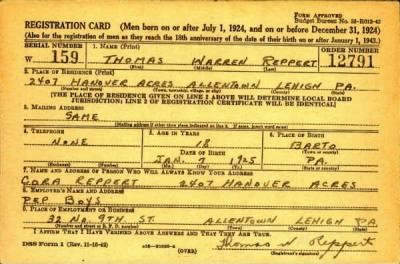 FORM APPROVED
Budget Bureau No. 33-R012-42
REGISTRATION CARD (Men born on or after July 1, 1924, and on or before December 31, 1924)
(Also for the registration of men as they reach the 18th anniversary of the date of their birth on or after January 1, 1943.)
SERIAL NUMBER
1. NAME (Print)
ORDER NUMBER
W 159
THOMAS WARREN REPPERT
12791
(First) (Middle) (Last)
2. PLACE OF RESIDENCE (Print)
2407 HANOVER ACRES ALLENTOWN LEHIGH PA.
(Number and street) (Town, township, village, or city) (County) (State)
[THE PLACE OF RESIDENCE GIVEN ON LINE 2 ABOVE WILL DETERMINE LOCAL BOARD
JURISDICTION; LINE 2 OF REGISTRATION CERTIFICATE WILL BE IDENTICAL]
3. MAILING ADDRESS
SAME
[Mailing address if other than place indicated on line 2. If same, insert word same]
4. TELEPHONE
5. AGE IN YEARS
6. PLACE OF BIRTH
NONE
18
BARTO
DATE OF BIRTH
(Town or county)
JAN. 7 1925
PA.
(Exchange) (Number)
(Mo.) (Day) (Yr.)
(State or country)
7. NAME AND ADDRESS OF PERSON WHO WILL ALWAYS KNOW YOUR ADDRESS
CORA REPPERT 2407 HANOVER ACRES
8. EMPLOYER'S NAME AND ADDRESS
PEP BOYS
9. PLACE OF EMPLOYMENT OR BUSINESS
32 NO. 9TH ST. ALLENTOWN LEHIGH PA
(Number and street or R. F. D. number) (Town) (County) (State)
I AFFIRM THAT I HAVE VERIFIED ABOVE ANSWERS AND THAT THEY ARE TRUE.
DSS Form 1 (Rev. 11-16-42)
(OVER)
Thomas W. Reppert
(Registrant's signature)